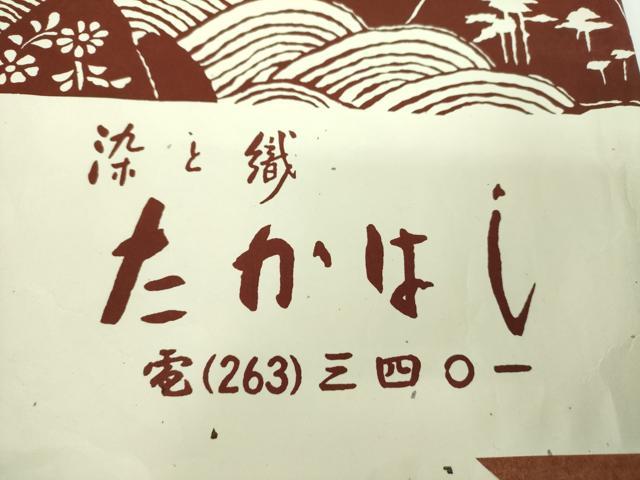 染と織
たかはし
電(263)三四〇一